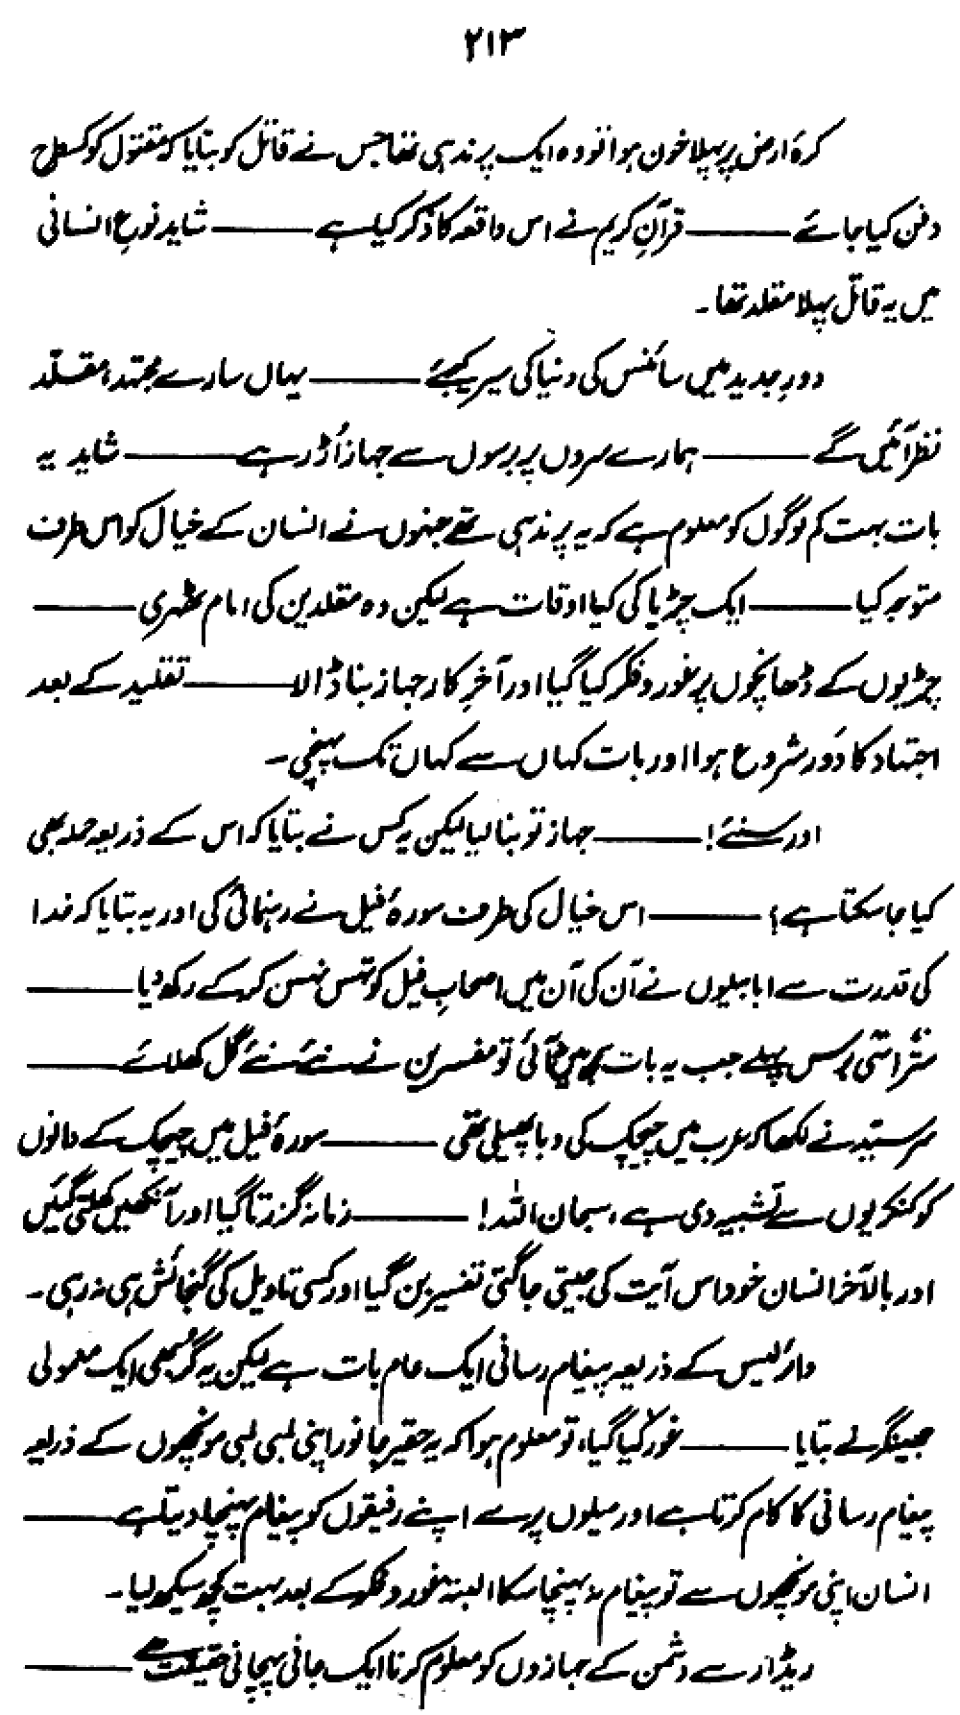 ۲۱۳
کرۂ ارض پر پہلا خون ہوا تو وہ ایک پرند ہی تھا جس نے قاتل کو بتایا کہ مقتول کو کس طرح
دفن کیا جائے ——— قرآنِ کریم نے اس واقعہ کا ذکر کیا ہے ——— شاید نوعِ انسانی
میں یہ قاتل پہلا مقلد تھا۔
دورِ جدید میں سائنس کی دنیا کی سیر کیجئے ——— یہاں سارے مجتہد، مقلّد
نظر آئیں گے ——— ہمارے سروں پر برسوں سے جہاز اُڑ رہے ——— شاید یہ
بات بہت کم لوگوں کو معلوم ہے کہ یہ پرند ہی تھے جنہوں نے انسان کے خیال کو اس طرف
متوجہ کیا ——— ایک چڑیا کی کیا اوقات ہے لیکن وہ مقلدین کی امام ٹھہری ———
چڑیوں کے ڈھانچوں پر غور و فکر کیا گیا اور آخرِ کار جہاز بنا ڈالا ——— تقلید کے بعد
اجتہاد کا دَور شروع ہوا اور بات کہاں سے کہاں تک پہنچی۔
اور سنئے! ——— جہاز تو بنا لیا لیکن یہ کس نے بتایا کہ اس کے ذریعہ حملہ بھی
کیا جا سکتا ہے؟ ——— اس خیال کی طرف سورۂ فیل نے رہنمائی کی اور یہ بتایا کہ خدا
کی قدرت سے ابابیلوں نے آن کی آن میں اصحابِ فیل کو تہس نہس کر کے رکھ دیا ———
ستّر اسّی برس پہلے جب یہ بات سمجھ میں نہ آئی تو مفسرین نے نئے نئے گل کھلائے ———
سرسیّد نے لکھا کہ عرب میں چیچک کی وبا پھیلی تھی ——— سورۂ فیل میں چیچک کے دانوں
کو کنکریوں سے تشبیہ دی ہے، سبحان اللہ! ——— زمانہ گزرتا گیا اور آنکھیں کھلتی گئیں
اور بالآخر انسان خود اس آیت کی جیتی جاگتی تفسیر بن گیا اور کسی تاویل کی گنجائش ہی نہ رہی۔
وائرلیس کے ذریعہ پیغام رسانی ایک عام بات ہے لیکن یہ گُر بھی ایک معمولی
جھینگر نے بتایا ——— غور کیا گیا، تو معلوم ہوا کہ یہ حقیر جانور اپنی لمبی لمبی مونچھوں کے ذریعہ
پیغام رسانی کا کام کرتا ہے اور میلوں پرے اپنے رفیقوں کو پیغام پہنچا دیتا ہے ———
انسان اپنی مونچھوں سے تو پیغام نہ پہنچا سکا البتہ غور و فکر کے بعد بہت کچھ سیکھ لیا۔
ریڈار سے دشمن کے جہازوں کو معلوم کرنا ایک جانی پہچانی حقیقت ہے ———